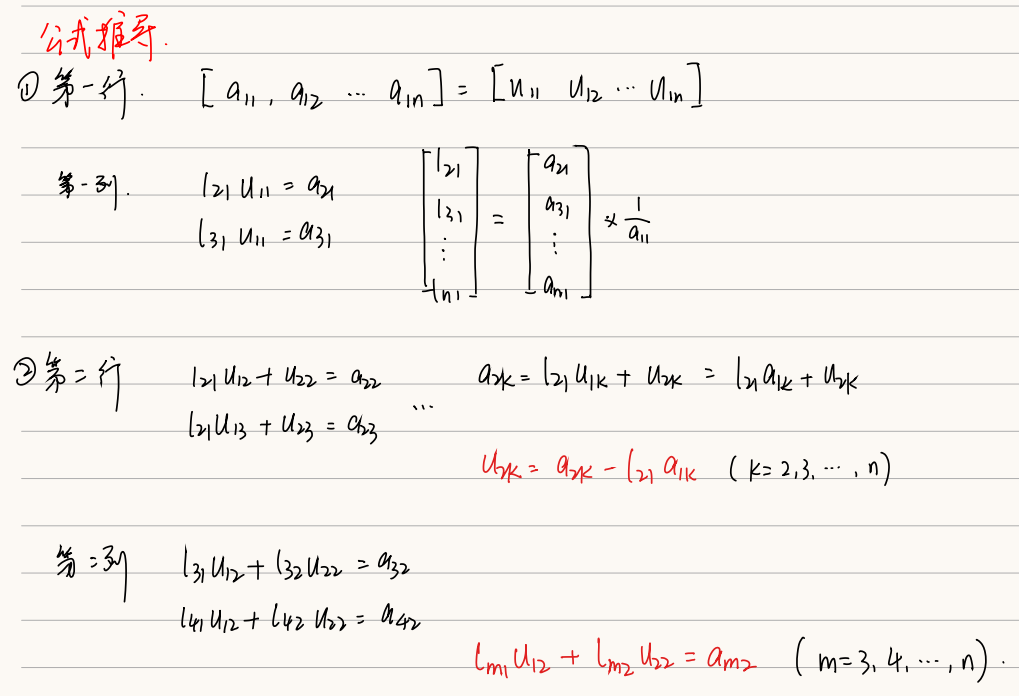 公式推导.
① 第一行. [a₁₁, a₁₂ ⋯ a₁ₙ] = [u₁₁ u₁₂ ⋯ u₁ₙ]
第一列. l₂₁ u₁₁ = a₂₁
l₃₁ u₁₁ = a₃₁
[l₂₁ l₃₁ ⋮ lₙ₁] = [a₂₁ a₃₁ ⋮ aₙ₁] × 1/a₁₁
② 第二行 l₂₁u₁₂ + u₂₂ = a₂₂ a₂ₖ = l₂₁u₁ₖ + u₂ₖ = l₂₁a₁ₖ + u₂ₖ
l₂₁u₁₃ + u₂₃ = a₂₃ ⋯
u₂ₖ = a₂ₖ − l₂₁ a₁ₖ (k=2,3,⋯,n)
第二列 l₃₁u₁₂ + l₃₂u₂₂ = a₃₂
l₄₁u₁₂ + l₄₂ u₂₂ = a₄₂
lₘ₁u₁₂ + lₘ₂u₂₂ = aₘ₂ (m=3,4,⋯,n).